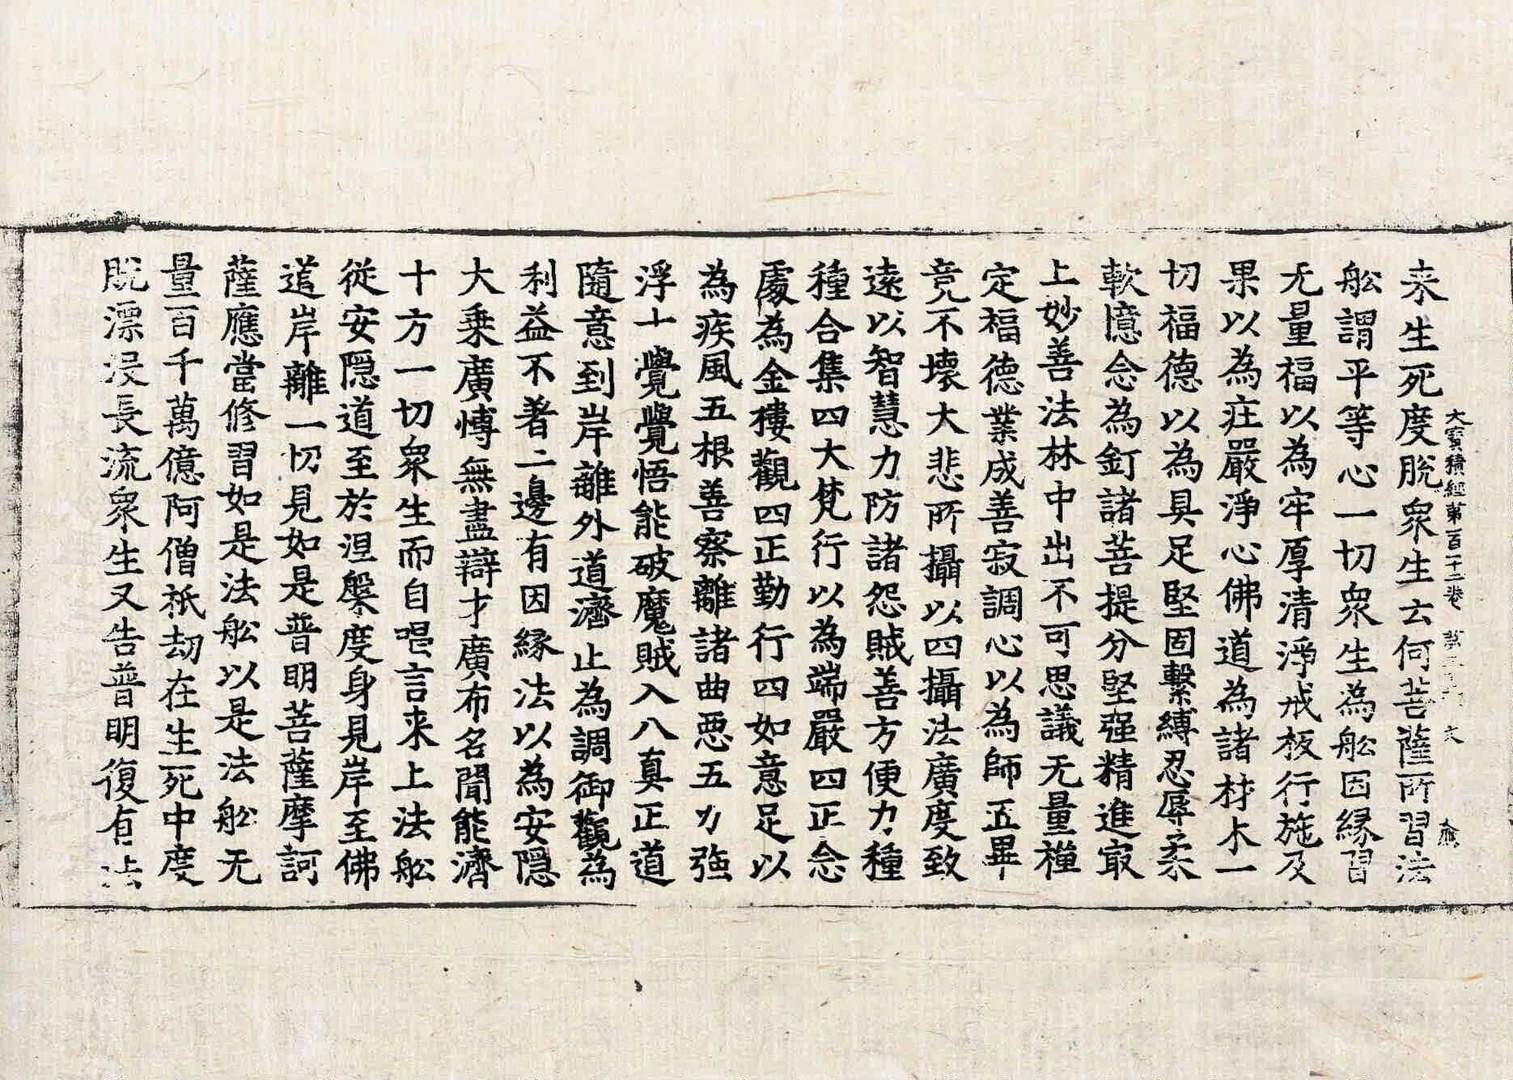 大寶積經第百十二卷 第二 文 庶
来生死度脫衆生云何菩薩所習法
舩謂平等心一切衆生為舩因緣習
无量福以為牢厚清淨戒板行施及
果以為庄嚴淨心佛道為諸材木一
切福德以為具足堅固繫縛忍辱柔
軟憶念為釘諸菩提分堅强精進冣
上妙善法林中出不可思議无量禪
定福德業成善寂調心以為師五畢
竟不壞大悲所攝以四攝法廣度致
遠以智慧力防諸怨賊善方便力種
種合集四大梵行以為端嚴四正念
處為金樓觀四正勤行四如意足以
為疾風五根善察離諸曲惡五力強
浮七覺覺悟能破魔賊入八真正道
隨意到岸離外道濟止為調御觀為
利益不著二邊有因緣法以為安隱
大乘廣博無盡辯才廣布名聞能濟
十方一切衆生而自唱言来上法舩
從安隱道至於涅槃度身見岸至佛
道岸離一切見如是普明菩薩摩訶
薩應當修習如是法舩以是法舩无
量百千萬億阿僧祇劫在生死中度
脫漂沒長流衆生又告普明復有法